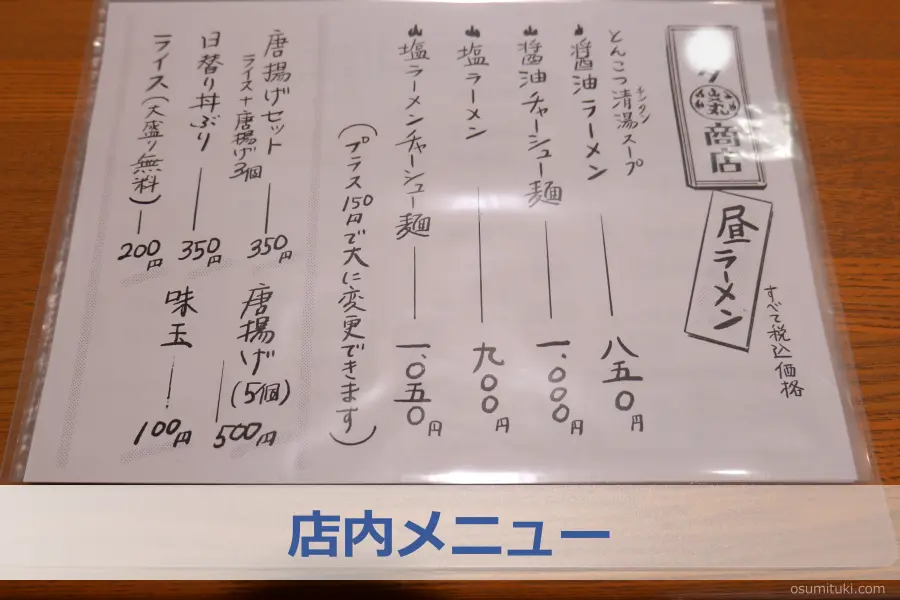 商店
昼ラーメン
すべて税込価格
とんこつ清湯スープ
チンタン
醤油ラーメン 八五〇円
醤油チャーシュー麺 一、〇〇〇円
塩ラーメン 九〇〇円
塩ラーメンチャーシュー麺 一、〇五〇円
(プラス150円で大に変更できます)
唐揚げセット 350円
ライス+唐揚げ3個
日替り丼ぶり 350円
ライス(大盛り無料) 200円
唐揚げ(5個) 500円
味玉 100円
店内メニュー
osumituki.com